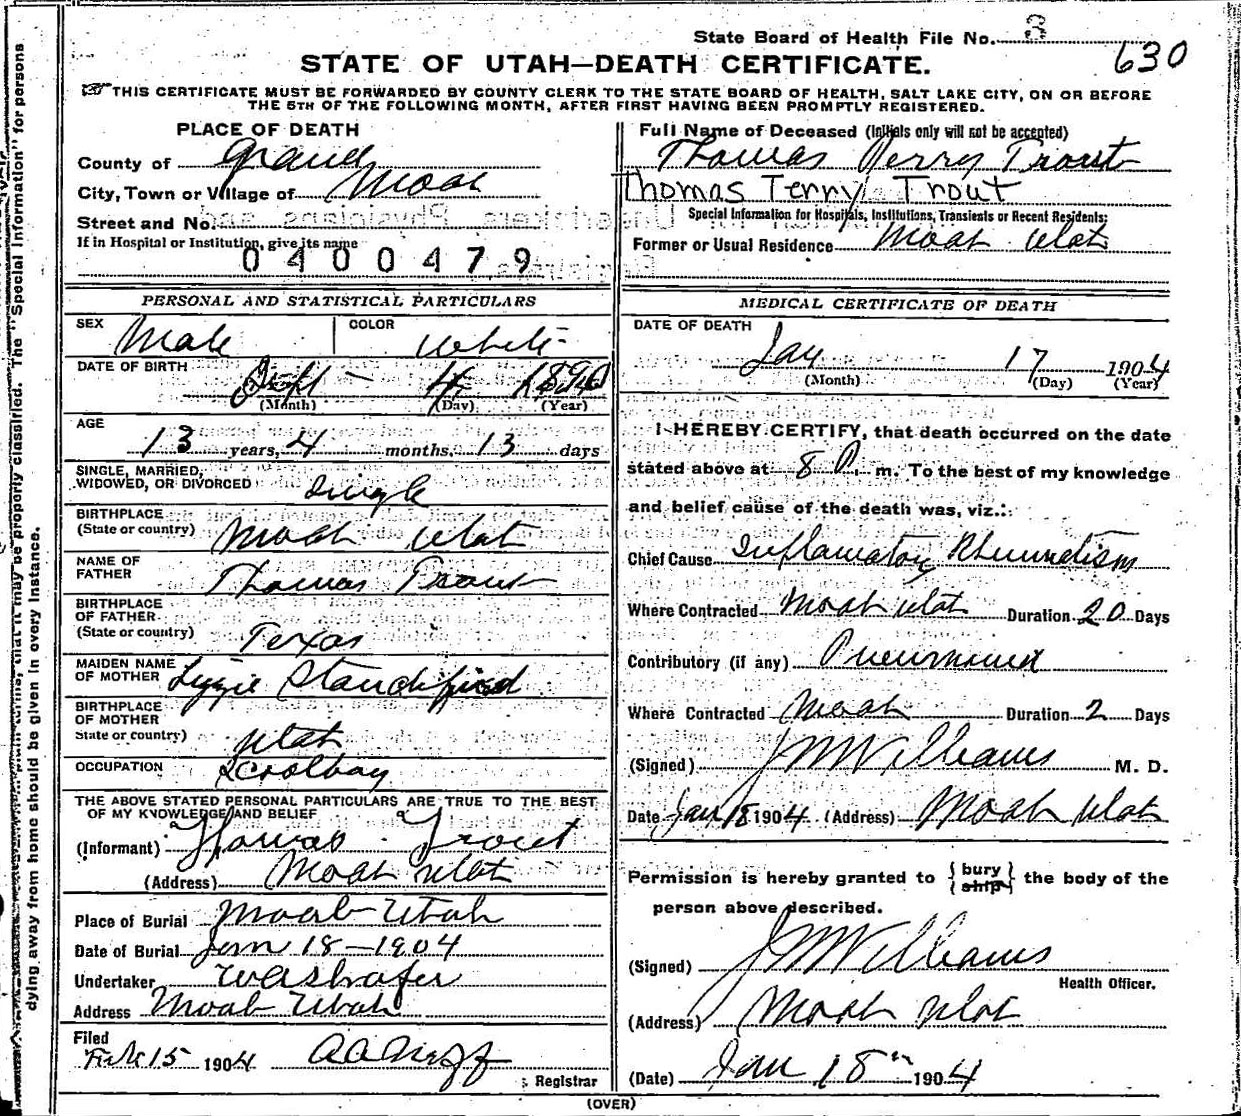 State Board of Health File No. 3
630
STATE OF UTAH—DEATH CERTIFICATE.
THIS CERTIFICATE MUST BE FORWARDED BY COUNTY CLERK TO THE STATE BOARD OF HEALTH, SALT LAKE CITY, ON OR BEFORE
THE 5TH OF THE FOLLOWING MONTH, AFTER FIRST HAVING BEEN PROMPTLY REGISTERED.
PLACE OF DEATH
County of Grand
City, Town or Village of Moab
Street and No.
If in Hospital or Institution, give its name
0400479
Full Name of Deceased (Initials only will not be accepted)
Thomas Perry Trout
Thomas Terry Trout
Special Information for Hospitals, Institutions, Transients or Recent Residents:
Former or Usual Residence Moab Utah
PERSONAL AND STATISTICAL PARTICULARS
SEX Male COLOR White
DATE OF BIRTH Sept 4
(Month) (Day) (Year)
AGE
13 years, 4 months, 13 days
SINGLE, MARRIED,
WIDOWED, OR DIVORCED Single
BIRTHPLACE
(State or country) Moab Utah
NAME OF
FATHER Thomas Trout
BIRTHPLACE
OF FATHER
(State or country) Texas
MAIDEN NAME
OF MOTHER Lizzie Standifird
BIRTHPLACE
OF MOTHER
State or country) Utah
OCCUPATION Scoolboy
THE ABOVE STATED PERSONAL PARTICULARS ARE TRUE TO THE BEST
OF MY KNOWLEDGE AND BELIEF
(Informant) Thomas Trout
(Address) Moab Utah
Place of Burial Moab Utah
Date of Burial Jan 18-1904
Undertaker
Address Moab Utah
Filed
Feb 15 1904
Registrar
MEDICAL CERTIFICATE OF DEATH
DATE OF DEATH
Jan 17 1904
(Month) (Day) (Year)
I HEREBY CERTIFY, that death occurred on the date
stated above at 8 P. m. To the best of my knowledge
and belief cause of the death was, viz.:
Chief Cause Inflamatory Rheumatism
Where Contracted Moab Utah Duration 20 Days
Contributory (if any) Pneumonia
Where Contracted Moab Duration 2 Days
(Signed) J M Williams M. D.
Date Jan 18 1904 (Address) Moab Utah
Permission is hereby granted to {bury
ship} the body of the
person above described.
(Signed) J M Williams
Health Officer.
(Address) Moab Utah
(Date) Jan 18th 1904
(OVER)
dying away from home should be given in every instance.
may be properly classified. The "Special Information" for persons